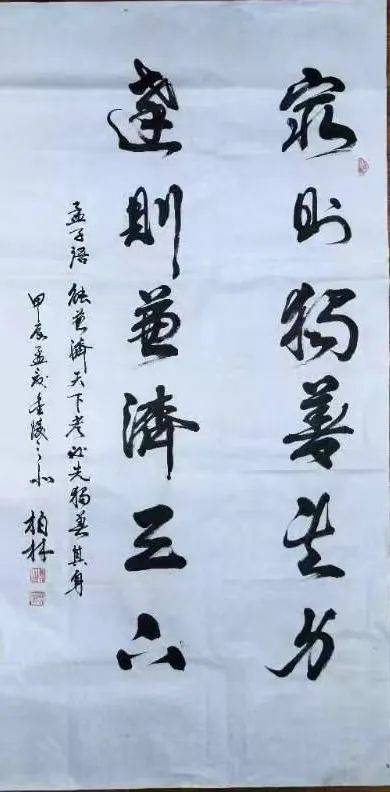 窮則獨善其身
達則兼濟天下
孟子語 能兼濟天下者必先獨善其身
甲辰孟 金陵 柏林